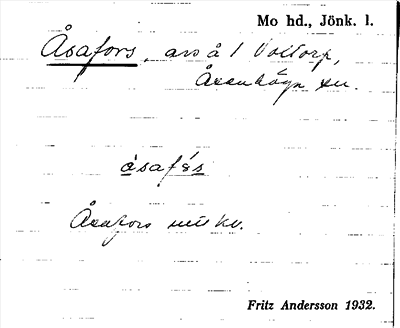 Mo hd., Jönk. l.
Åsafors, avs å 1 Valtorp,
Åsenhöga sn.
åsafós
Åsafors
Fritz Andersson 1932.